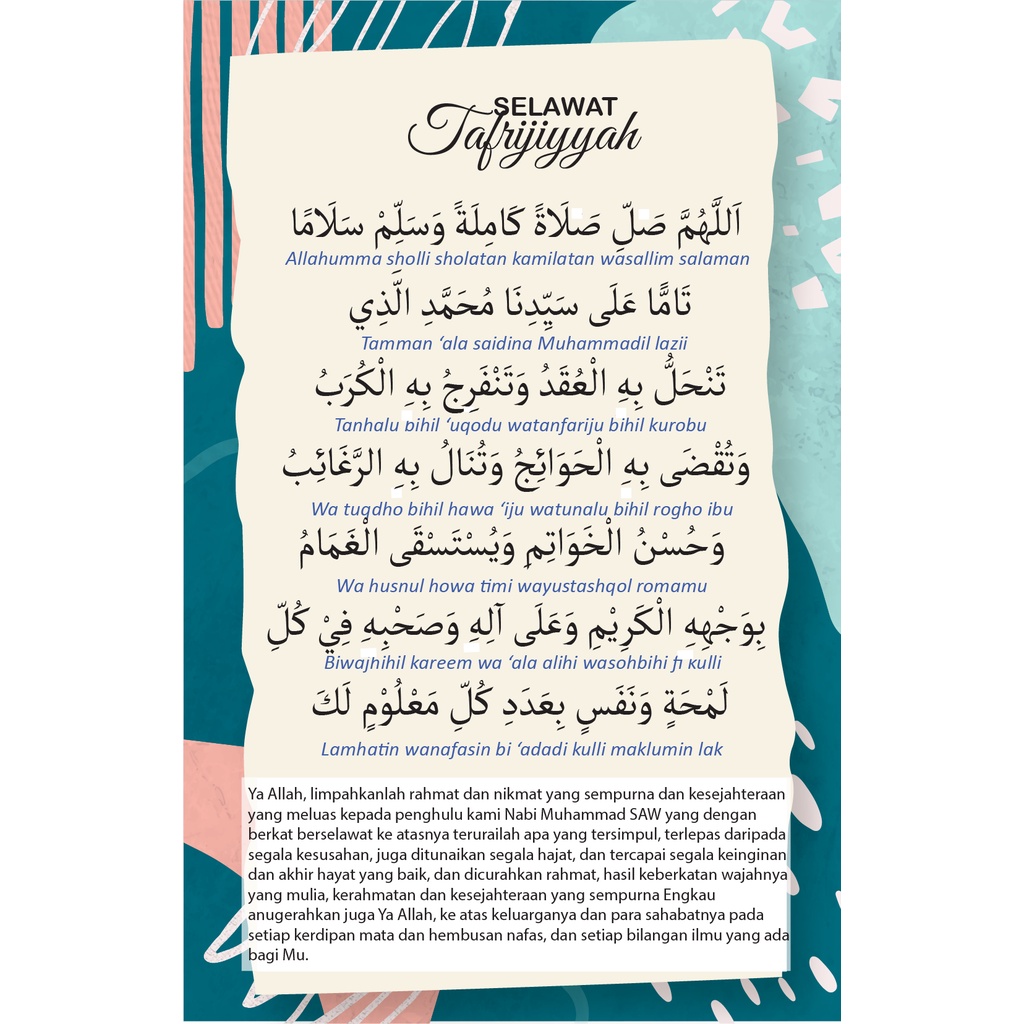 SELAWAT
Tafrijiyyah
اَللَّهُمَّ صَلِّ صَلَاةً كَامِلَةً وَسَلِّمْ سَلَامًا
Allahumma sholli sholatan kamilatan wasallim salaman
تَامًّا عَلَى سَيِّدِنَا مُحَمَّدِ الَّذِي
Tamman ‘ala saidina Muhammadil lazii
تَنْحَلُّ بِهِ الْعُقَدُ وَتَنْفَرِجُ بِهِ الْكُرَبُ
Tanhalu bihil ‘uqodu watanfariju bihil kurobu
وَتُقْضَى بِهِ الْحَوَائِجُ وَتُنَالُ بِهِ الرَّغَائِبُ
Wa tuqdho bihil hawa ‘iju watunalu bihil rogho ibu
وَحُسْنُ الْخَوَاتِمِ وَيُسْتَسْقَى الْغَمَامُ
Wa husnul howa timi wayustashqol romamu
بِوَجْهِهِ الْكَرِيْمِ وَعَلَى آلِهِ وَصَحْبِهِ فِيْ كُلِّ
Biwajhihil kareem wa ‘ala alihi wasohbihi fi kulli
لَمْحَةٍ وَنَفَسٍ بِعَدَدِ كُلِّ مَعْلُوْمٍ لَكَ
Lamhatin wanafasin bi ‘adadi kulli maklumin lak
Ya Allah, limpahkanlah rahmat dan nikmat yang sempurna dan kesejahteraan
yang meluas kepada penghulu kami Nabi Muhammad SAW yang dengan
berkat berselawat ke atasnya terurailah apa yang tersimpul, terlepas daripada
segala kesusahan, juga ditunaikan segala hajat, dan tercapai segala keinginan
dan akhir hayat yang baik, dan dicurahkan rahmat, hasil keberkatan wajahnya
yang mulia, kerahmatan dan kesejahteraan yang sempurna Engkau
anugerahkan juga Ya Allah, ke atas keluarganya dan para sahabatnya pada
setiap kerdipan mata dan hembusan nafas, dan setiap bilangan ilmu yang ada
bagi Mu.